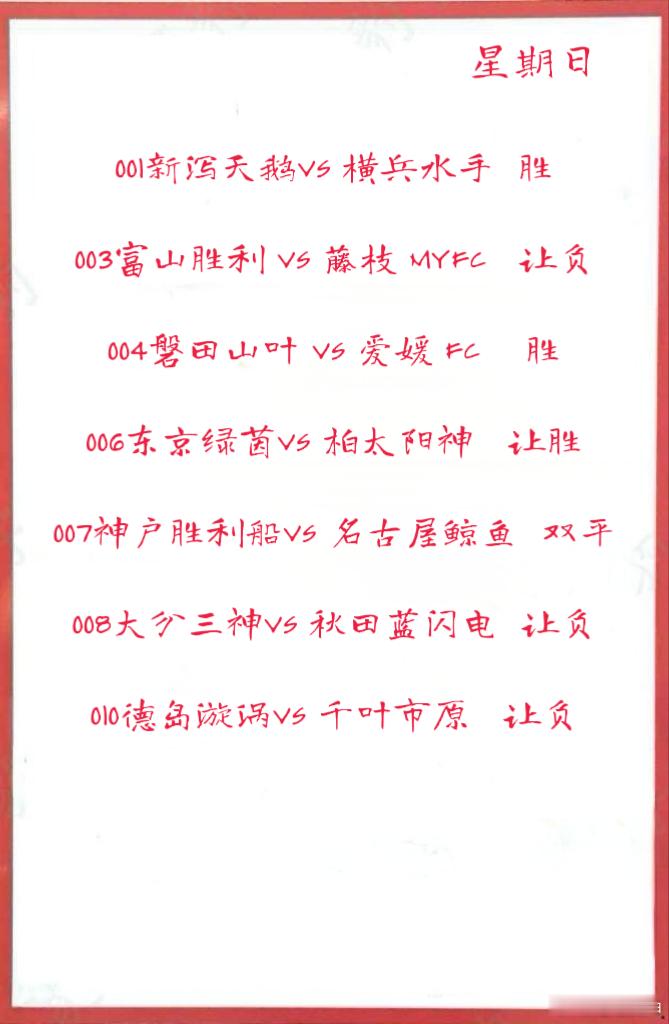 星期日
001新泻天鹅VS 横兵水手 胜
003富山胜利 VS 藤枝 MYFC 让负
004磐田山叶 VS 爱媛 FC 胜
006东京绿茵VS 柏太阳神 让胜
007神户胜利船VS 名古屋鲸鱼 双平
008大分三神VS 秋田蓝闪电 让负
010德岛漩涡VS 千叶市原 让负